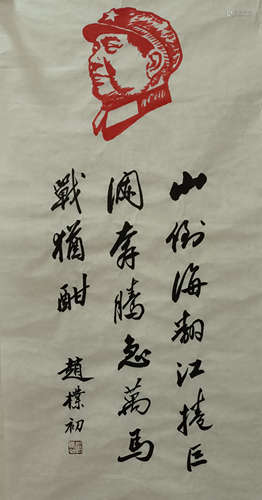 山倒海翻江捲巨
瀾奔騰急萬馬
戰猶酣
趙樸初